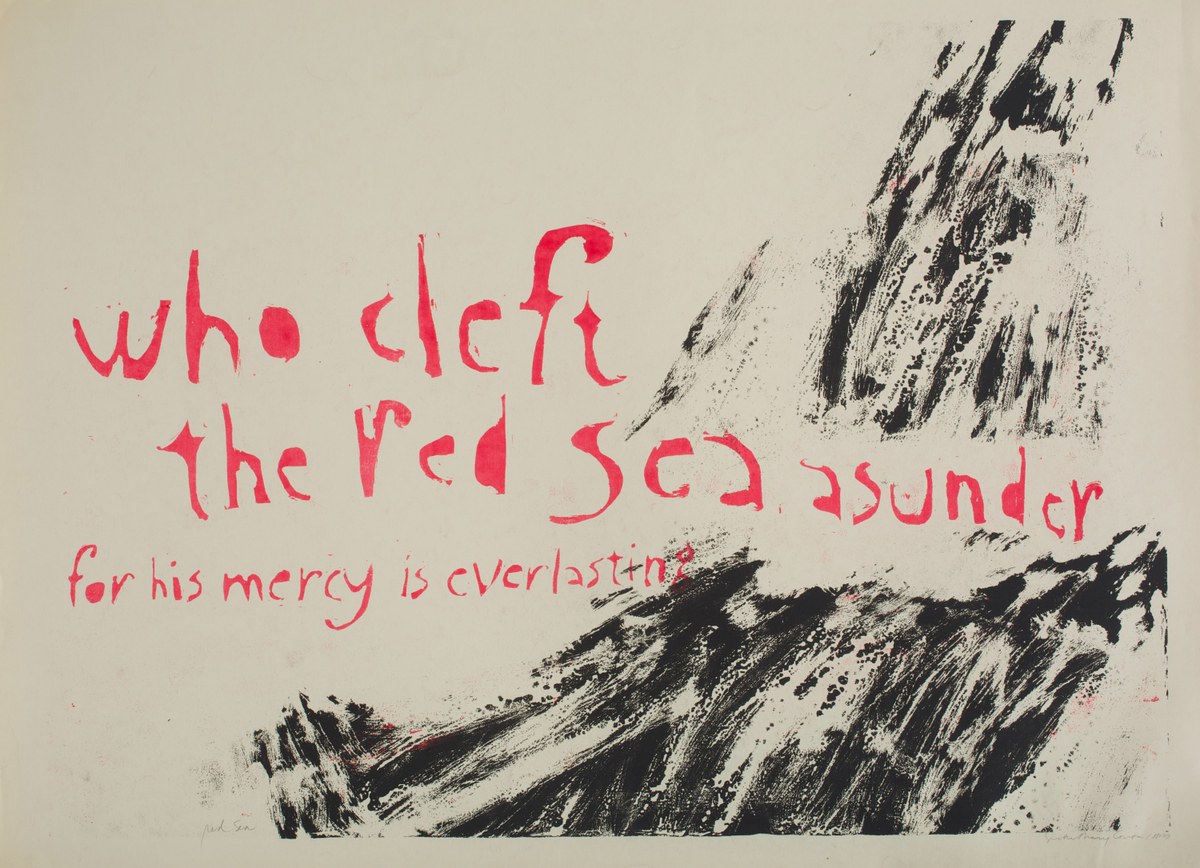 who cleft
the red sea asunder
for his mercy is everlasting
red sea